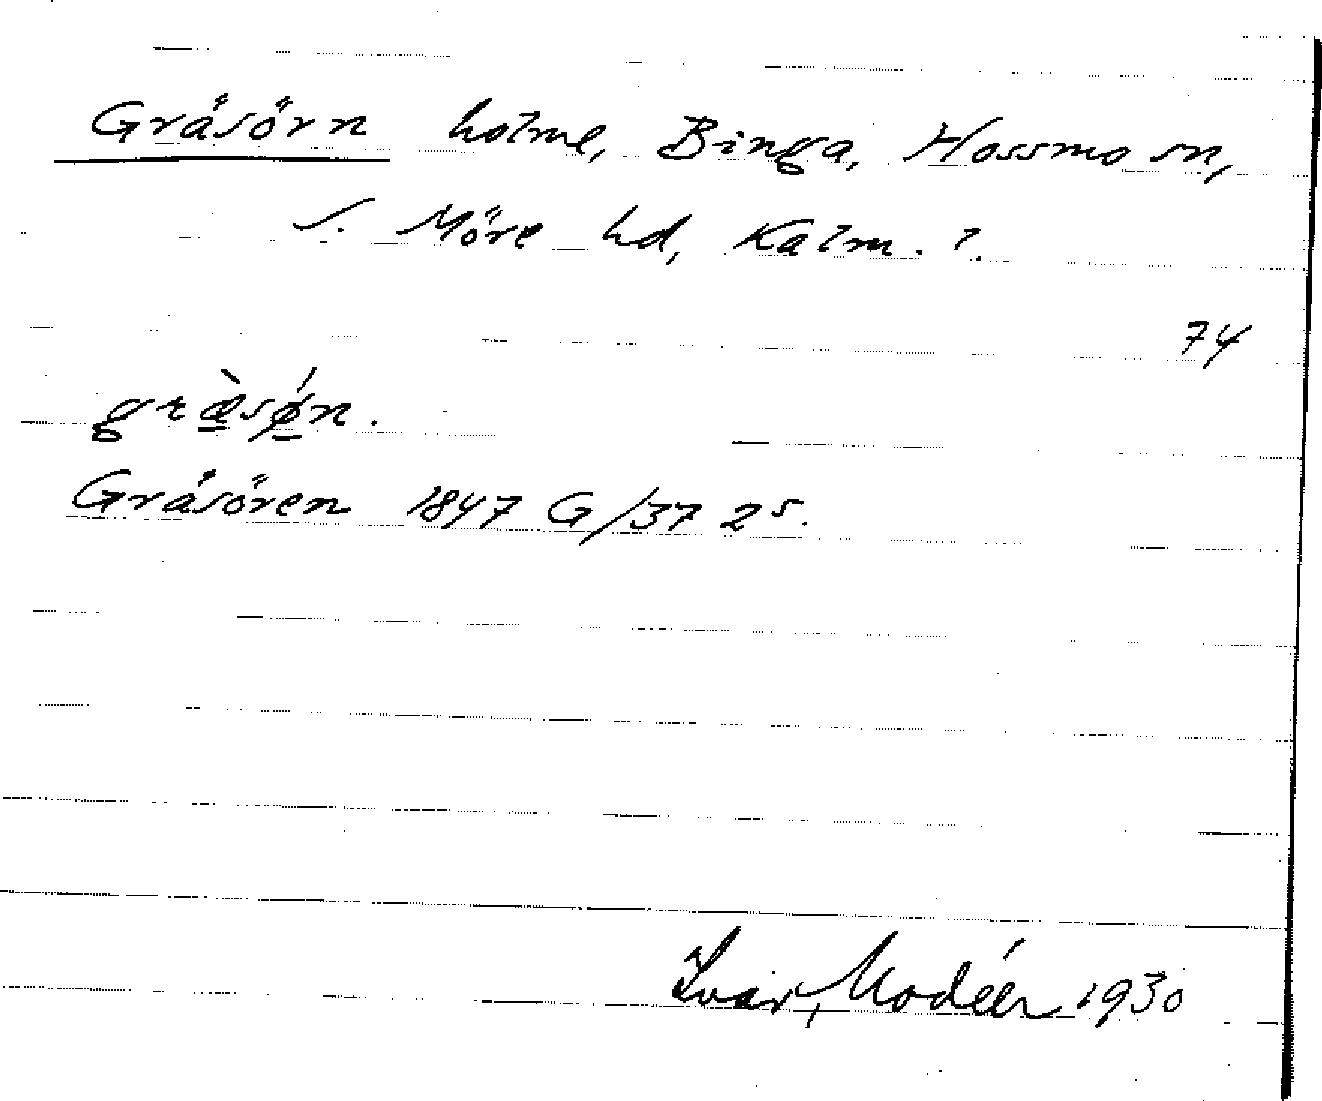 Gråsörn holme, Binga, Hossmo sn,
S. Möre hd, Kalm. l.
74
græ̀sǿn.
Gråsören 1847 G/37 2s.
Ivar Modéer 1930